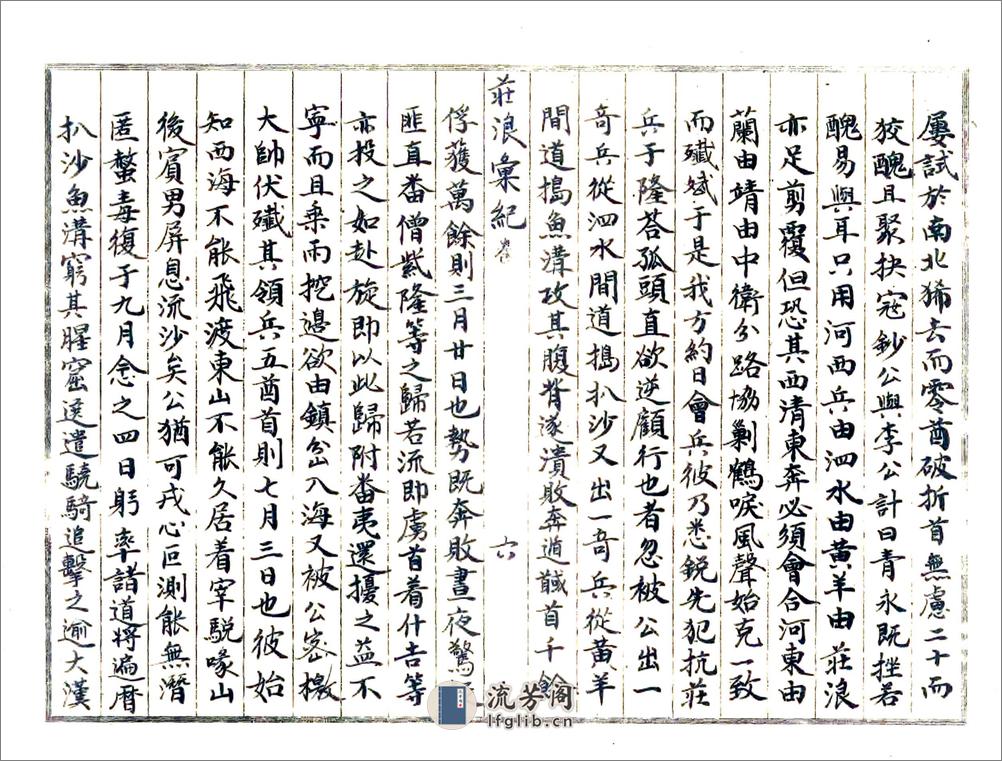 屢試於南北狶去而零酋破折首無慮二十而
狡醜且聚抉寇鈔公與李公計曰青永既挫若
醜易與耳只用河西兵由泗水由黃羊由莊浪
亦足剪覆但恐其西清東奔必須會合河東由
蘭由靖由中衛分路協剿鶴唳風聲始克一致
而殲斌于是我方約日會兵彼乃悉銳先犯抗莊
兵于隆荅孤頭直欲逆顧行也者忽被公出一
奇兵從泗水間道搗扒沙又出一奇兵從黃羊
間道搗魚溝攻其腹背遂潰敗奔遁馘首千餘
莊浪彙紀 卷 六
俘獲萬餘則三月廿日也勢既奔敗晝夜驚
匪直番僧紫隆等之歸若流即虜首着什吉等
亦投之如赴旋即以此歸附番夷還擾之益不
寧而且乘雨挖邊欲由鎮岔入海又被公密檄
大帥伏殲其領兵五酋首則七月三日也彼始
知西海不能飛渡東山不能久居着宰駾喙山
後賓男屏息流沙矣公猶可戎心叵測能無潛
匿螯毒復于九月念之四日躬率諸道將遍曆
扒沙魚溝窮其腥窟遂遣驍騎追擊之逾大漠
流芳阁
lfglib.cn